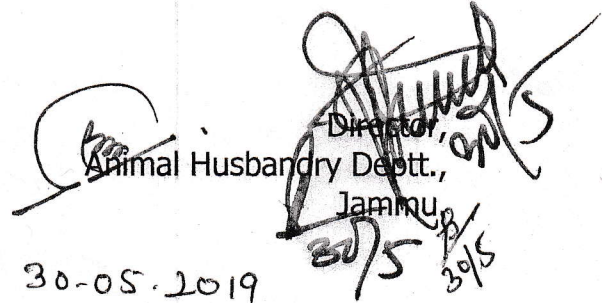 30/5
Director,
Animal Husbandry Deptt.,
Jammu
30/5
30/5
30-05-2019